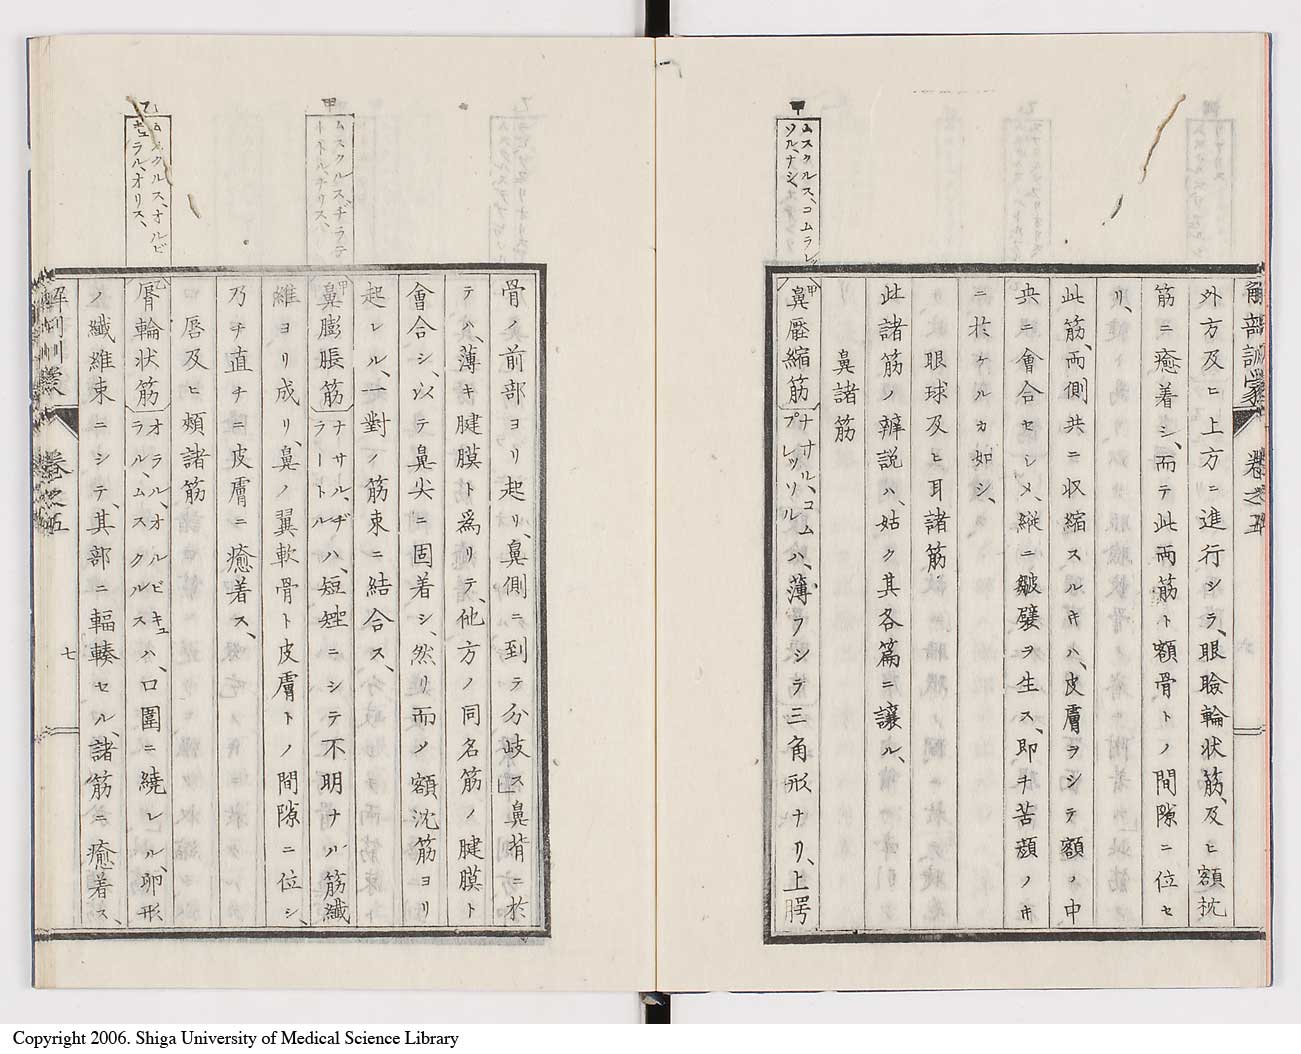 解剖訓蒙 卷之五
外方及ヒ上方ニ進行シラ、眼瞼輪状筋、及ヒ額枕
筋ニ癒着シ、而テ此両筋ト額骨トノ間隙ニ位セ
リ、
此筋、両側共ニ収縮スルキハ、皮膚ヲシテ額ノ中
央ニ會合セシメ、縦ニ皺襞ヲ生ス、即チ苦顔ノキ
ニ於ケルカ如シ、
眼球及ヒ耳諸筋
此諸筋ノ辨説ハ、姑ク其各篇ニ讓ル、
鼻諸筋
甲
ムスクルス、コムラレ
ソル、ナシ
甲鼻壓縮筋 ナサル、コム
プレッソル ハ、薄フシテ三角形ナリ、上腭
骨ノ前部ヨリ起リ、鼻側ニ到テ分岐ス、鼻背ニ於
テハ、薄キ腱膜ト爲リテ、他方ノ同名筋ノ腱膜ト
會合シ、以テ鼻尖ニ固着シ、然リ而ソ額沈筋ヨリ
起レル、一對ノ筋束ニ結合ス、
甲
ムスクルス、ヂラテ
トル、ナリス、
甲鼻膨脹筋 ナサル、ヂ
ラートル ハ、短矬ニシテ不明ナル筋纖
維ヨリ成リ、鼻ノ翼軟骨ト皮膚トノ間隙ニ位シ、
乃チ直チニ皮膚ニ癒着ス、
口唇及ヒ頰諸筋
乙
ムスクルス、オルビ
キュラル、オリス、
乙脣輪状筋 オラル、オルビキュ
ラル、ムスクルス ハ、口圍ニ繞レル、卵形
ノ纖維束ニシテ、其部ニ輻輳セル、諸筋ニ癒着ス、
解剖訓蒙 卷之五 七
Copyright 2006. Shiga University of Medical Science Library